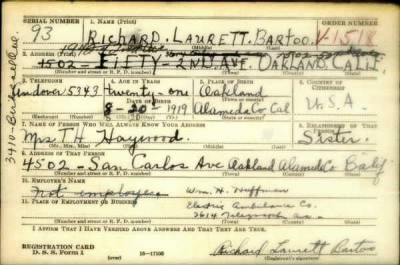 SERIAL NUMBER 1. NAME (Print) ORDER NUMBER
93 RICHARD. LAURETT. BARTOO. V-1518
(First) (Middle) (Last)
2. ADDRESS (Print)
1502 - FIFTY-2ND. AVE. OAKLAND. CALIF.
(Number and street or R. F. D. number) (Town) (County) (State)
3. TELEPHONE 4. AGE IN YEARS 5. PLACE OF BIRTH 6. COUNTRY OF CITIZENSHIP
Andover 5343 twenty-one Oakland
DATE OF BIRTH (Town or county)
8-20-1919 Alameda Co Cal U.S.A.
(Exchange) (Number) (Mo.) (Day) (Yr.) (State or country)
7. NAME OF PERSON WHO WILL ALWAYS KNOW YOUR ADDRESS 8. RELATIONSHIP OF THAT PERSON
Mrs T. H. Haywood. Sister.
(Mr., Mrs., Miss) (First) (Middle) (Last)
9. ADDRESS OF THAT PERSON
4502 - San Carlos Ave Oakland Alameda Co Calif
(Number and street or R. F. D. number) (Town) (County) (State)
10. EMPLOYER'S NAME
Not employed Wm. H. Huffman
11. PLACE OF EMPLOYMENT OR BUSINESS Electric Ambulance Co.
2614 Telegraph Ave
(Number and street or R. F. D. number) (Town) (County) (State)
I AFFIRM THAT I HAVE VERIFIED ABOVE ANSWERS AND THAT THEY ARE TRUE.
REGISTRATION CARD
D. S. S. Form 1 16-17105 Richard Laurett Bartoo
(over) (Registrant's signature)